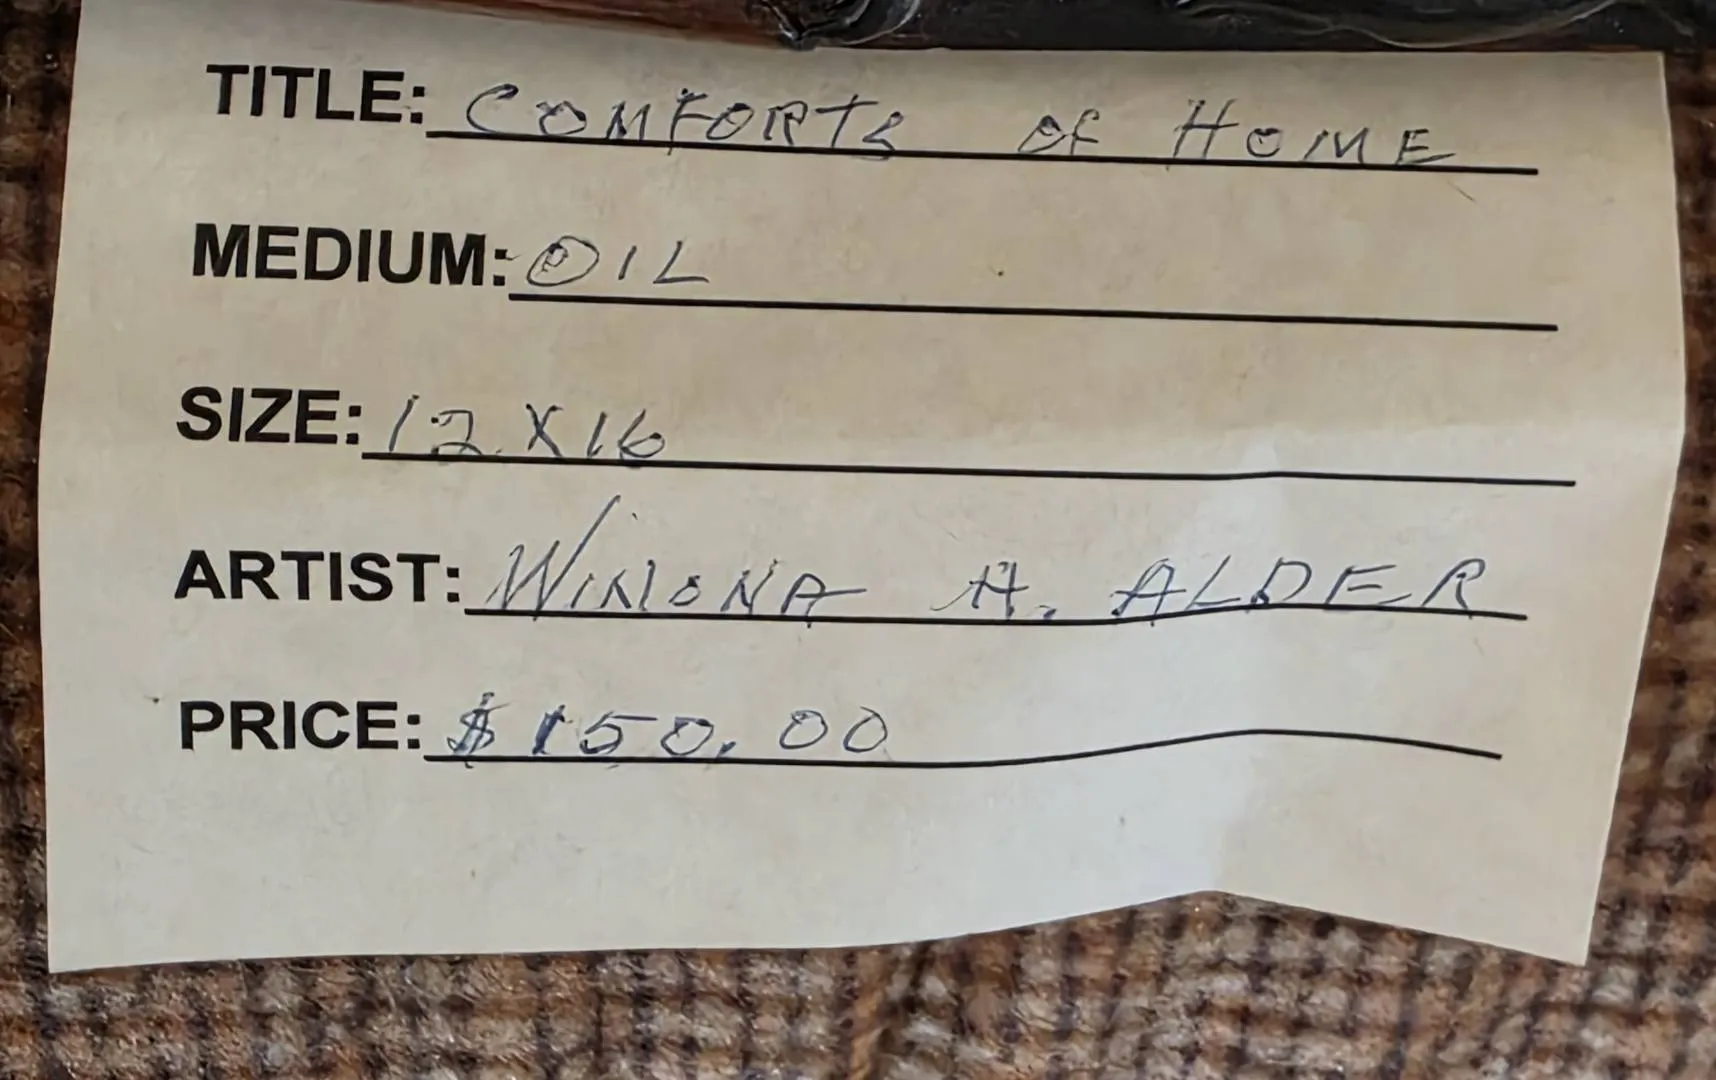 TITLE: COMFORTS OF HOME
MEDIUM: OIL
SIZE: 12 X 16
ARTIST: WINONA A. ALDER
PRICE: $150.00